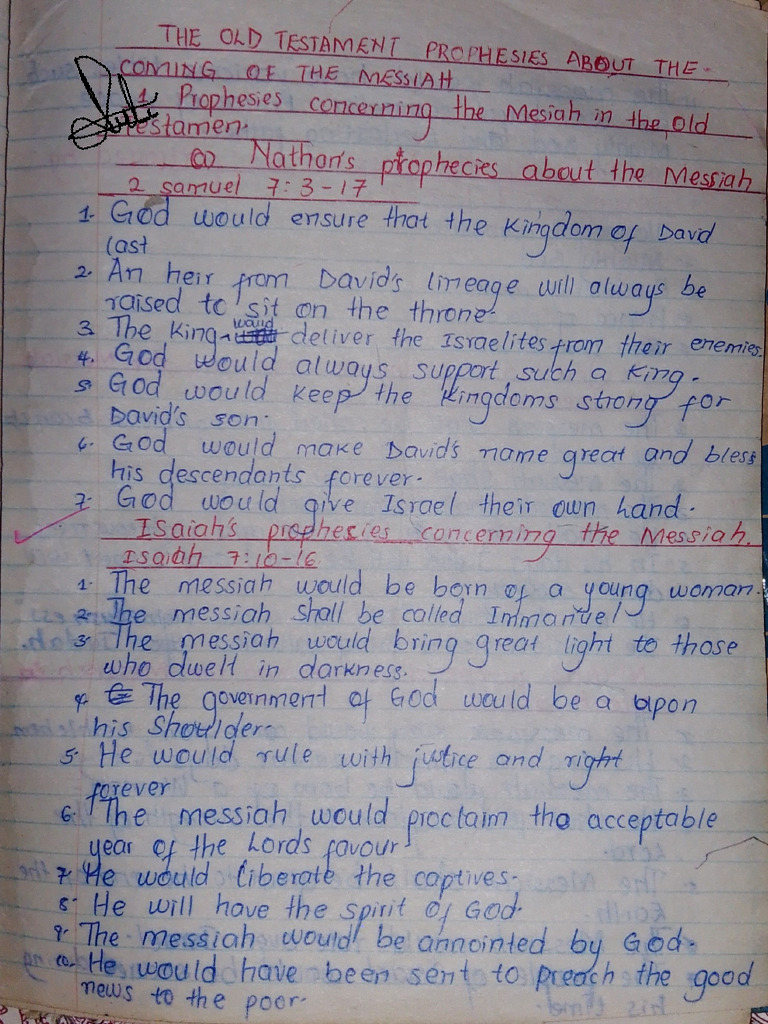 THE OLD TESTAMENT PROPHESIES ABOUT THE
COMING OF THE MESSIAH
1. Prophesies concerning the Mesiah in the old
Testamen.
(a) Nathan's prophecies about the Messiah
2 samuel 7:3-17
1. God would ensure that the Kingdom of David
last
2. An heir from David's lineage will always be
raised to sit on the throne.
3. The King would deliver the Israelites from their enemies.
4. God would always support such a King.
5. God would keep the Kingdoms strong for
David's son.
6. God would make David's name great and bless
his descendants forever.
7. God would give Israel their own hand.
Isaiah's prophesies concerning the Messiah.
Isaiah 7:10-16
1. The messiah would be born of a young woman.
2. The messiah shall be called Immanuel
3. The messiah would bring great light to those
who dwell in darkness.
4. The government of God would be a upon
his shoulder.
5. He would rule with justice and right
forever
6. The messiah would proclaim the acceptable
year of the Lords favour
7. He would liberate the captives.
8. He will have the spirit of God.
9. The messiah would be annointed by God.
10. He would have been sent to preach the good
news to the poor.